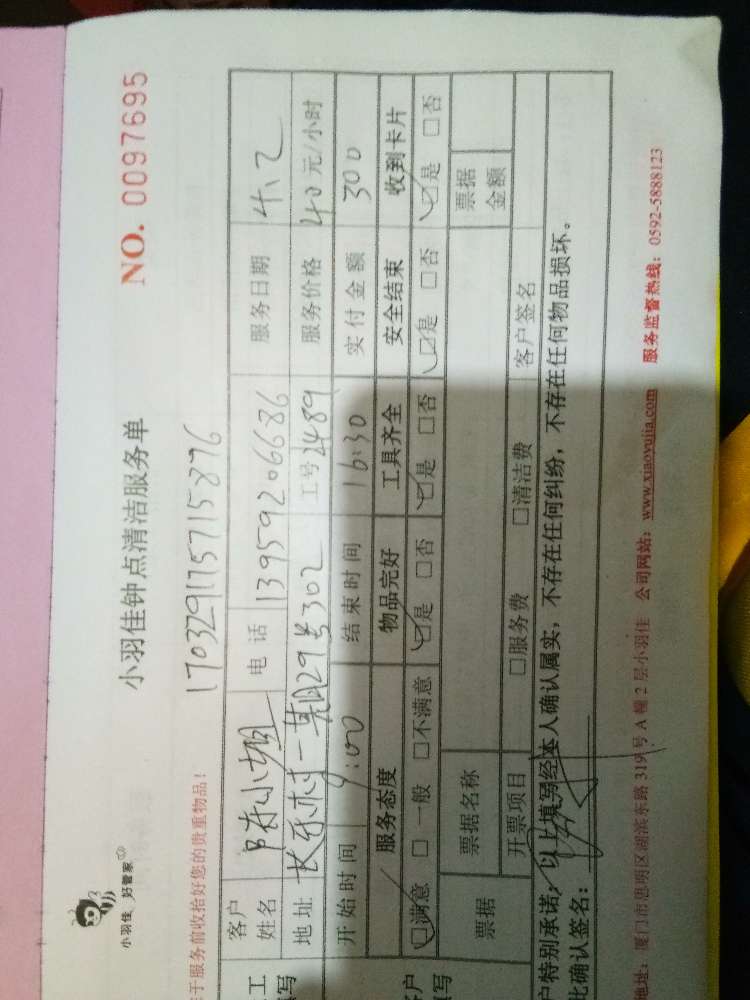 小羽佳 好管家
小羽佳钟点清洁服务单
NO. 0097695
于服务前收拾好您的贵重物品!
170329175715876
工
填写
客户姓名 陈小姐 电话 13959206686 服务日期 4.2
地址 长乐村一期29号302 工号 2489 服务价格 40元/小时
开始时间 9:00 结束时间 16:30 实付金额 300
户
填写
服务态度 物品完好 工具齐全 安全结束 收到卡片
☑满意 □一般 □不满意 ☑是 □否 ☑是 □否 ☑是 □否 ☑是 □否
票据 票据名称 票据金额
开票项目 □服务费 □清洁费 客户签名
户特别承诺,以上填写经本人确认属实,不存在任何纠纷,不存在任何物品损坏。
此确认签名:
地址:厦门市思明区湖滨东路319号A幢2层小羽佳 公司网站:www.xiaoyujia.com 服务监督热线:0592-5888123